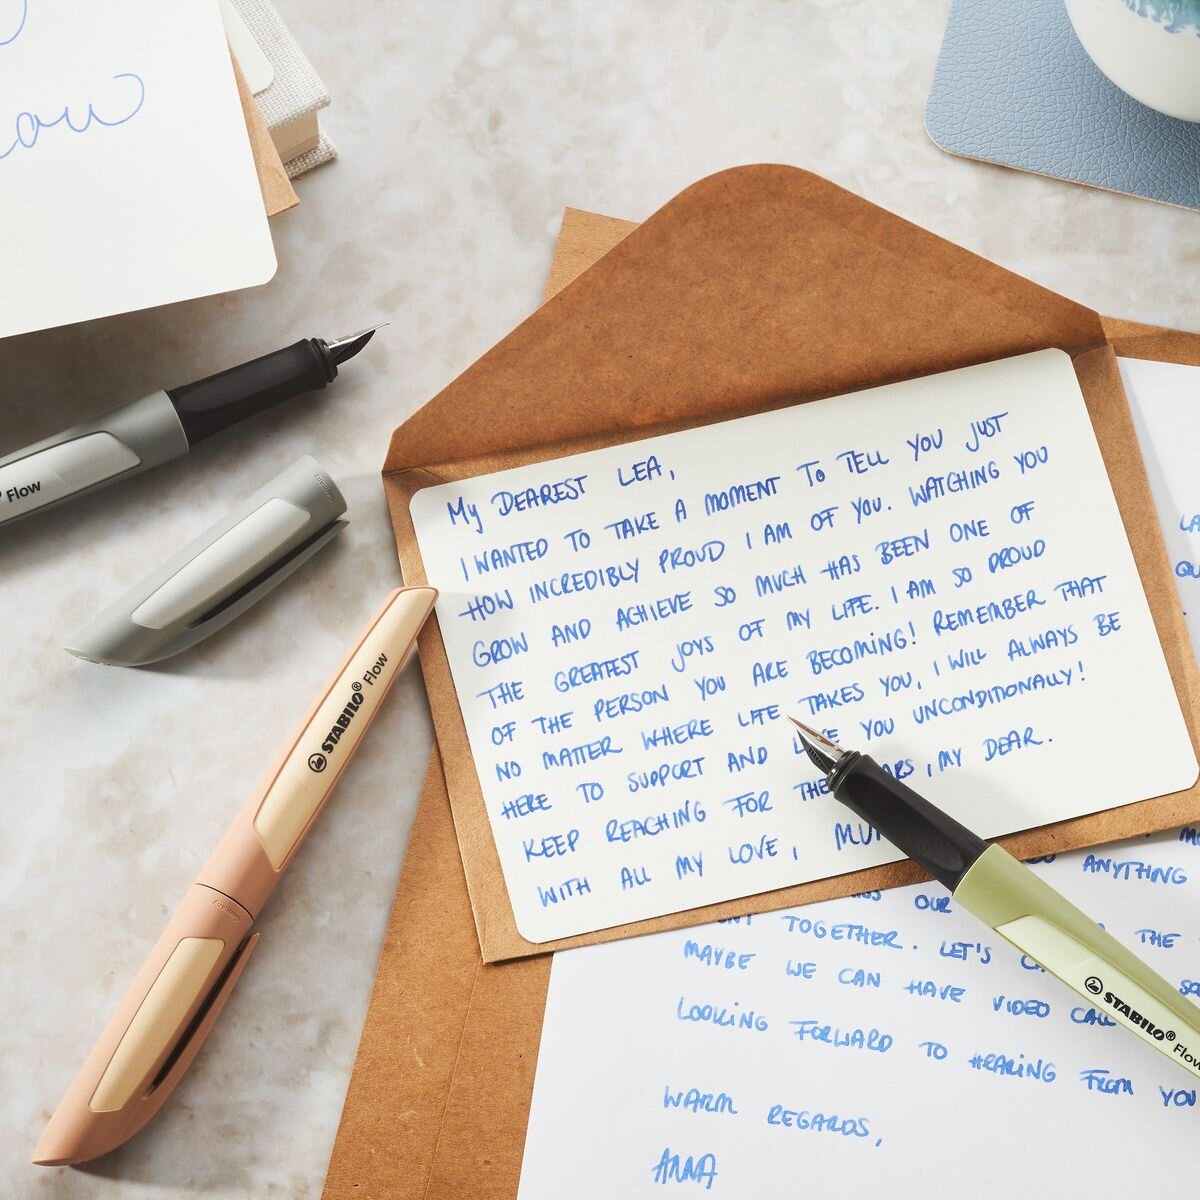 Flow
STABILO® Flow
My DEAREST LEA,
I WANTED TO TAKE A MOMENT TO TELL YOU JUST
HOW INCREDIBLY PROUD I AM OF YOU. WATCHING YOU
GROW AND ACHIEVE SO MUCH HAS BEEN ONE OF
THE GREATEST JOYS OF MY LIFE. I AM SO PROUD
OF THE PERSON YOU ARE BECOMING! REMEMBER THAT
NO MATTER WHERE LIFE TAKES YOU, I WILL ALWAYS BE
HERE TO SUPPORT AND YOU UNCONDITIONALLY!
KEEP REACHING FOR , MY DEAR.
WITH ALL MY LOVE,
STABILO® Flow
ANYTHING
OUR THE
TOGETHER. LET'S
MAYBE WE CAN HAVE VIDEO CALL
LOOKING FORWARD TO HEARING FROM YOU
WARM REGARDS,
ANNA